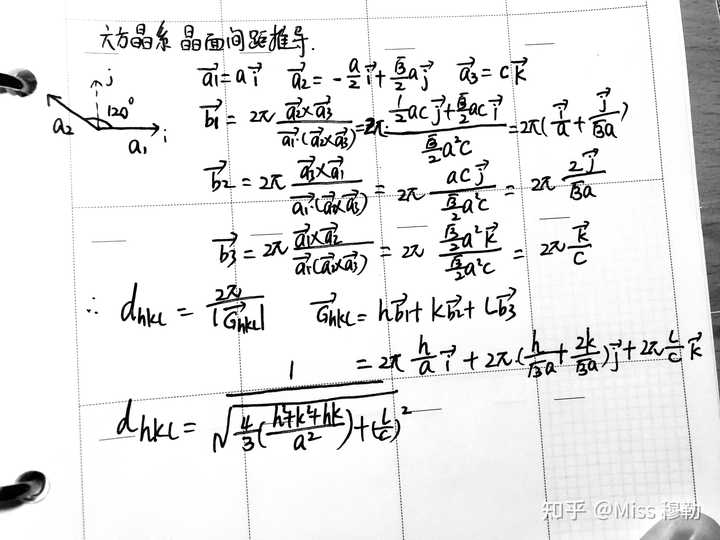 六方晶系 晶面间距推导.
j 120° a₂ a₁ i
a⃗₁ = a i⃗  a⃗₂ = -a/2 i⃗ + √3/2 a j⃗  a⃗₃ = c k⃗
b⃗₁ = 2π (a⃗₂×a⃗₃)/(a⃗₁·(a⃗₂×a⃗₃)) = 2π· (1/2 ac j⃗ + √3/2 ac i⃗)/(√3/2 a²c) = 2π(i⃗/a + j⃗/√3a)
b⃗₂ = 2π (a⃗₃×a⃗₁)/(a⃗₁·(a⃗₂×a⃗₃)) = 2π (ac j⃗)/(√3/2 a²c) = 2π 2j⃗/√3a
b⃗₃ = 2π (a⃗₁×a⃗₂)/(a⃗₁(a⃗₂×a⃗₃)) = 2π (√3/2 a² k⃗)/(√3/2 a²c) = 2π k⃗/c
∴ d_hkl = 2π/|G⃗_hkl|  G⃗_hkl = h b⃗₁ + k b⃗₂ + l b⃗₃
= 2π h/a i⃗ + 2π(h/√3a + 2k/√3a) j⃗ + 2π l/c k⃗
d_hkl = 1/√(4/3((h²+k²+hk)/a²) + (l/c)²)
知乎 @Miss 穆勒